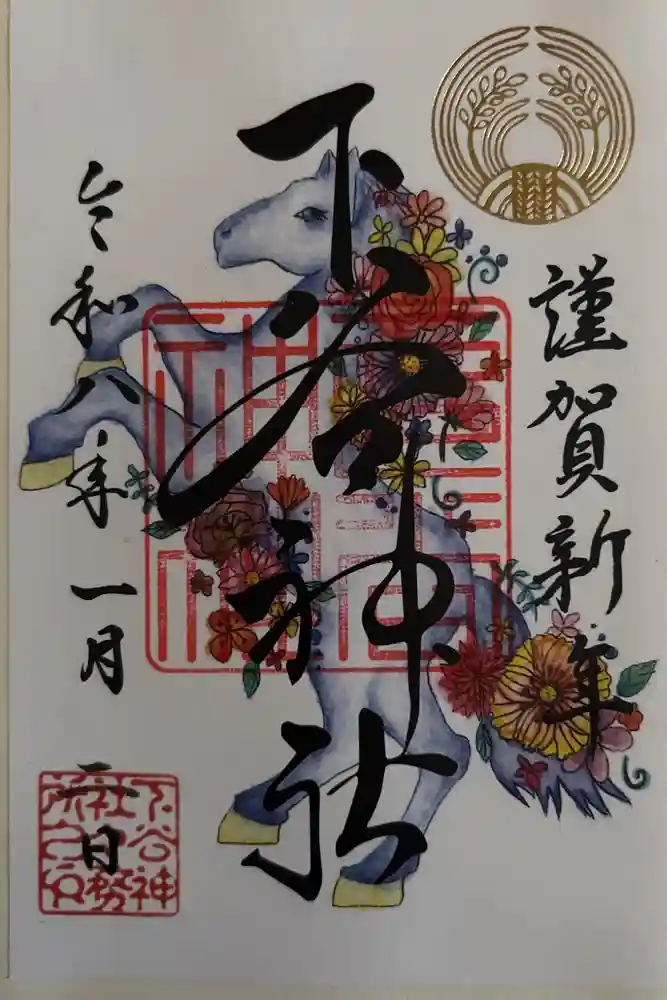 謹賀新年
下谷神社
令和八年 一月 二日
下谷神
社社務
所之印